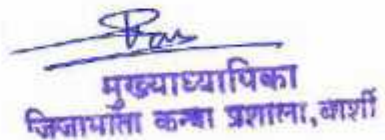 मुख्याध्यापिका
जिजामाता कन्या प्रशाला, बार्शी